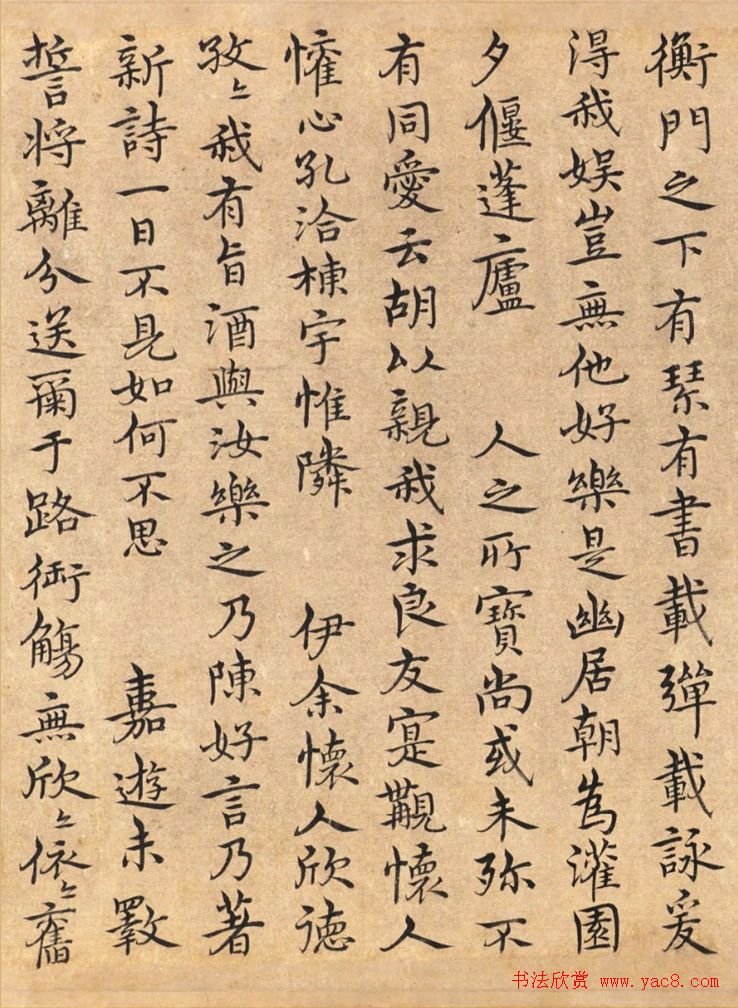 衡門之下有琴有書載彈載詠爰
得我娱豈無他好樂是幽居朝為灌園
夕偃蓬廬 人之所寶尚或未弥不
有同愛云胡以親我求良友寔覯懷人
懽心孔洽棟宇惟隣 伊余懷人欣德
孜〻我有旨酒與汝樂之乃陳好言乃著
新詩一日不見如何不思 嘉遊未斁
誓將離分送爾于路銜觴無欣〻依〻舊
书法欣赏 www.yac8.com